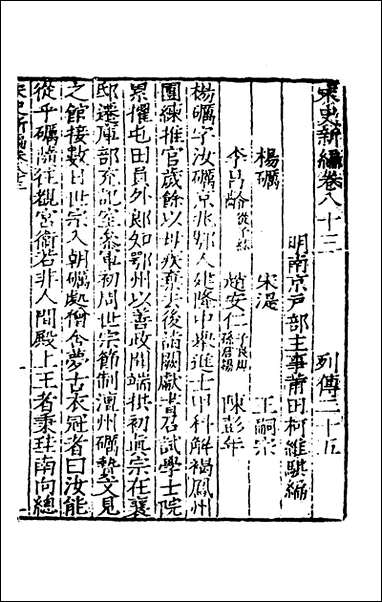 宋史新編卷八十三
列傳二十五
明南京戶部主事莆田柯維騏編
楊礪
宋湜
王嗣宗
李昌齡 從子紘
趙安仁 子良規 孫君錫
陳彭年
楊礪字汝礪京兆鄠人建隆中舉進士甲科解褐鳳州
團練推官歲餘以母疾棄去後詣闕獻書召試學士院
累擢屯田員外郎知鄂州以善政聞端拱初眞宗在襄
邸遷庫部充記室參軍初周世宗節制澶州礪贄文見
之館接數日世宗入朝礪處僧舍夢古衣冠者曰汝能
從乎礪隨往覩宮衞若非人間殿上王者秉珪南向總
宋史新編卷八十三
一